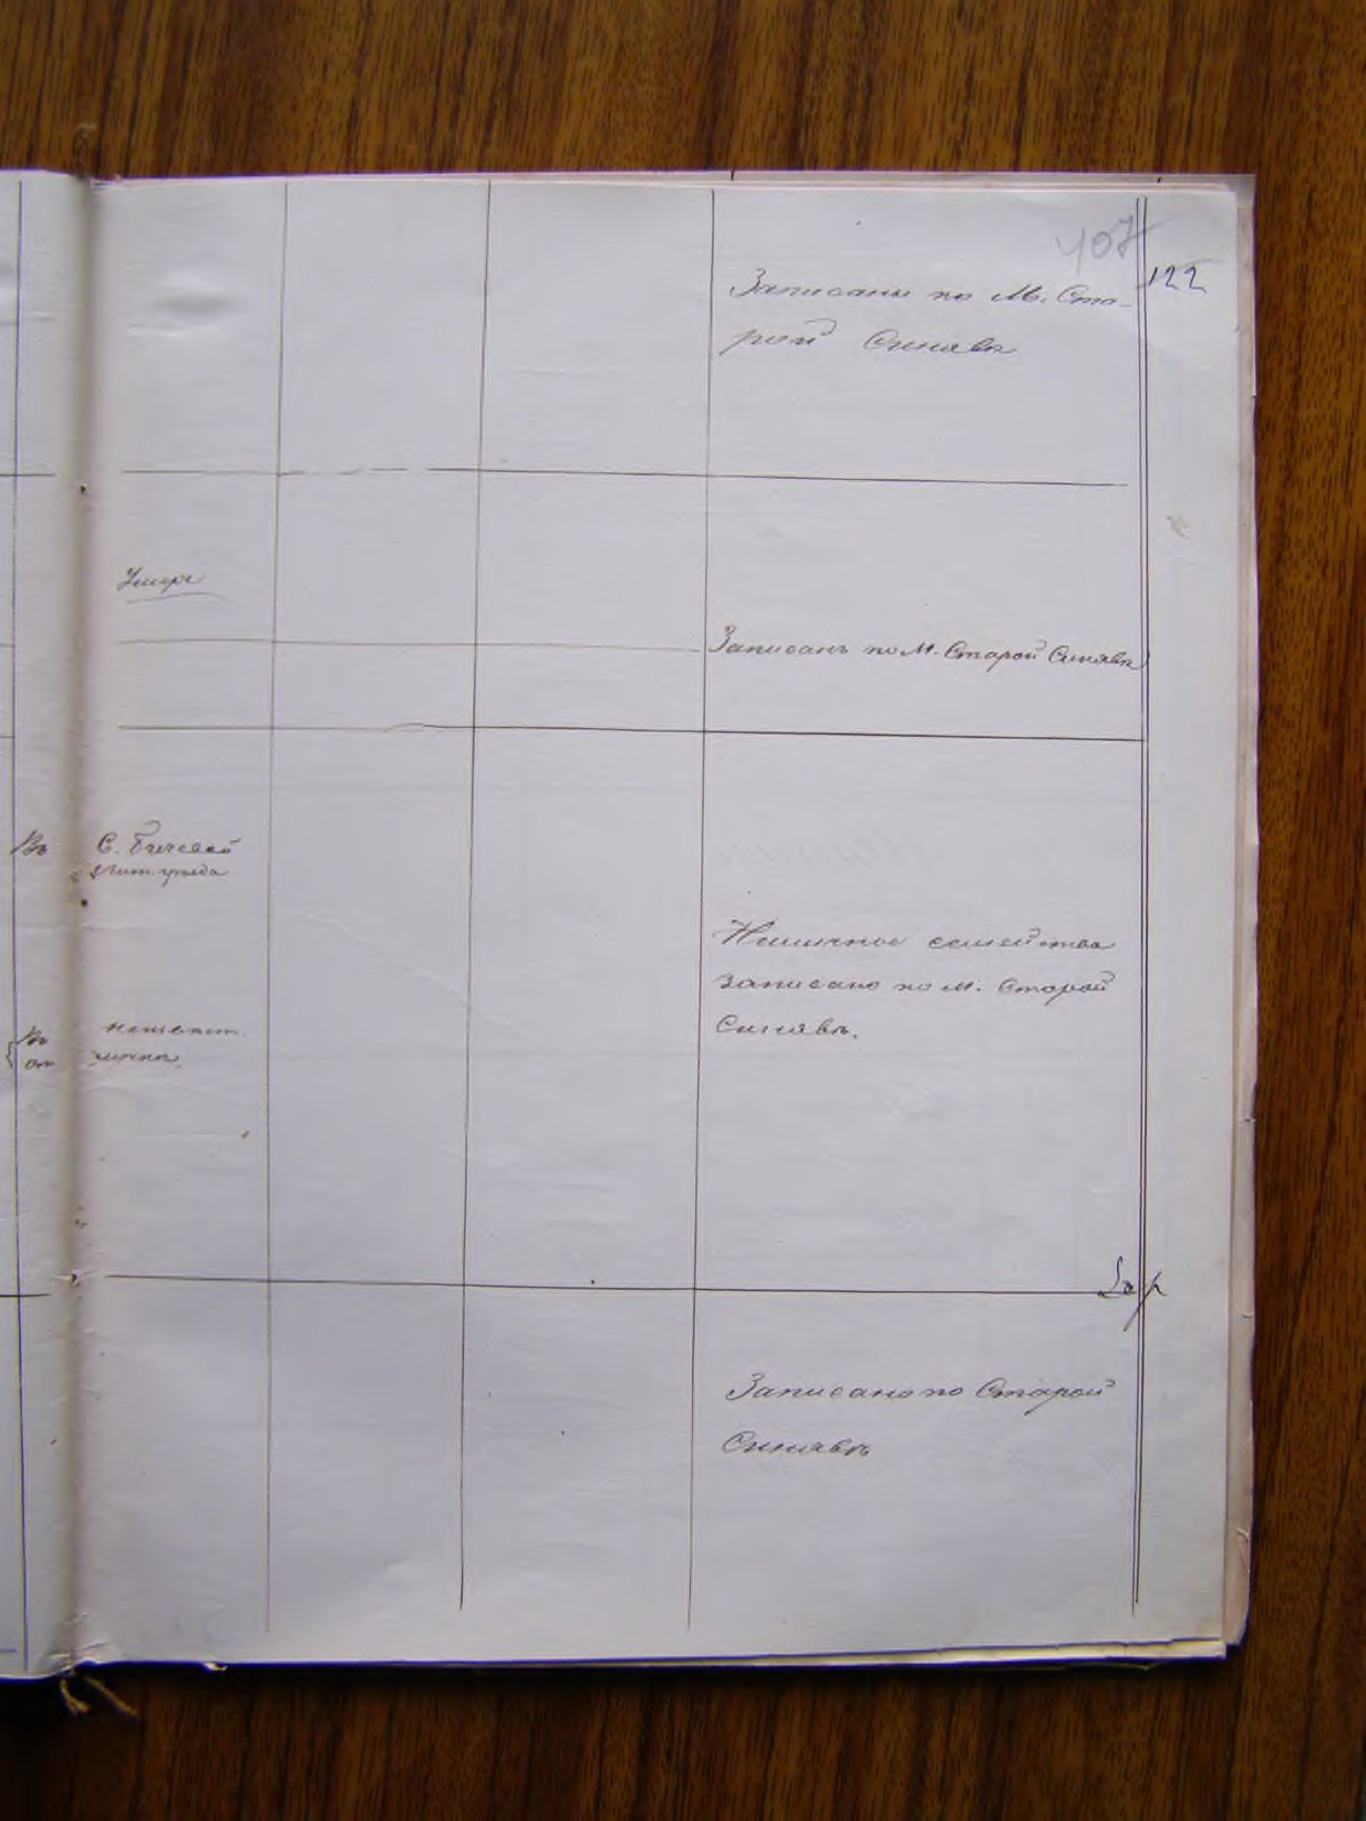 407
122
Записаны по М. Ста-
рой Синявѣ
Умеръ
Записанъ по М. Старой Синявѣ
Въ С. Бичевой
Лит. уѣзда
семейства
записано по м. Старой
Синявѣ.
Въ
Записано по Старой
Синявѣ